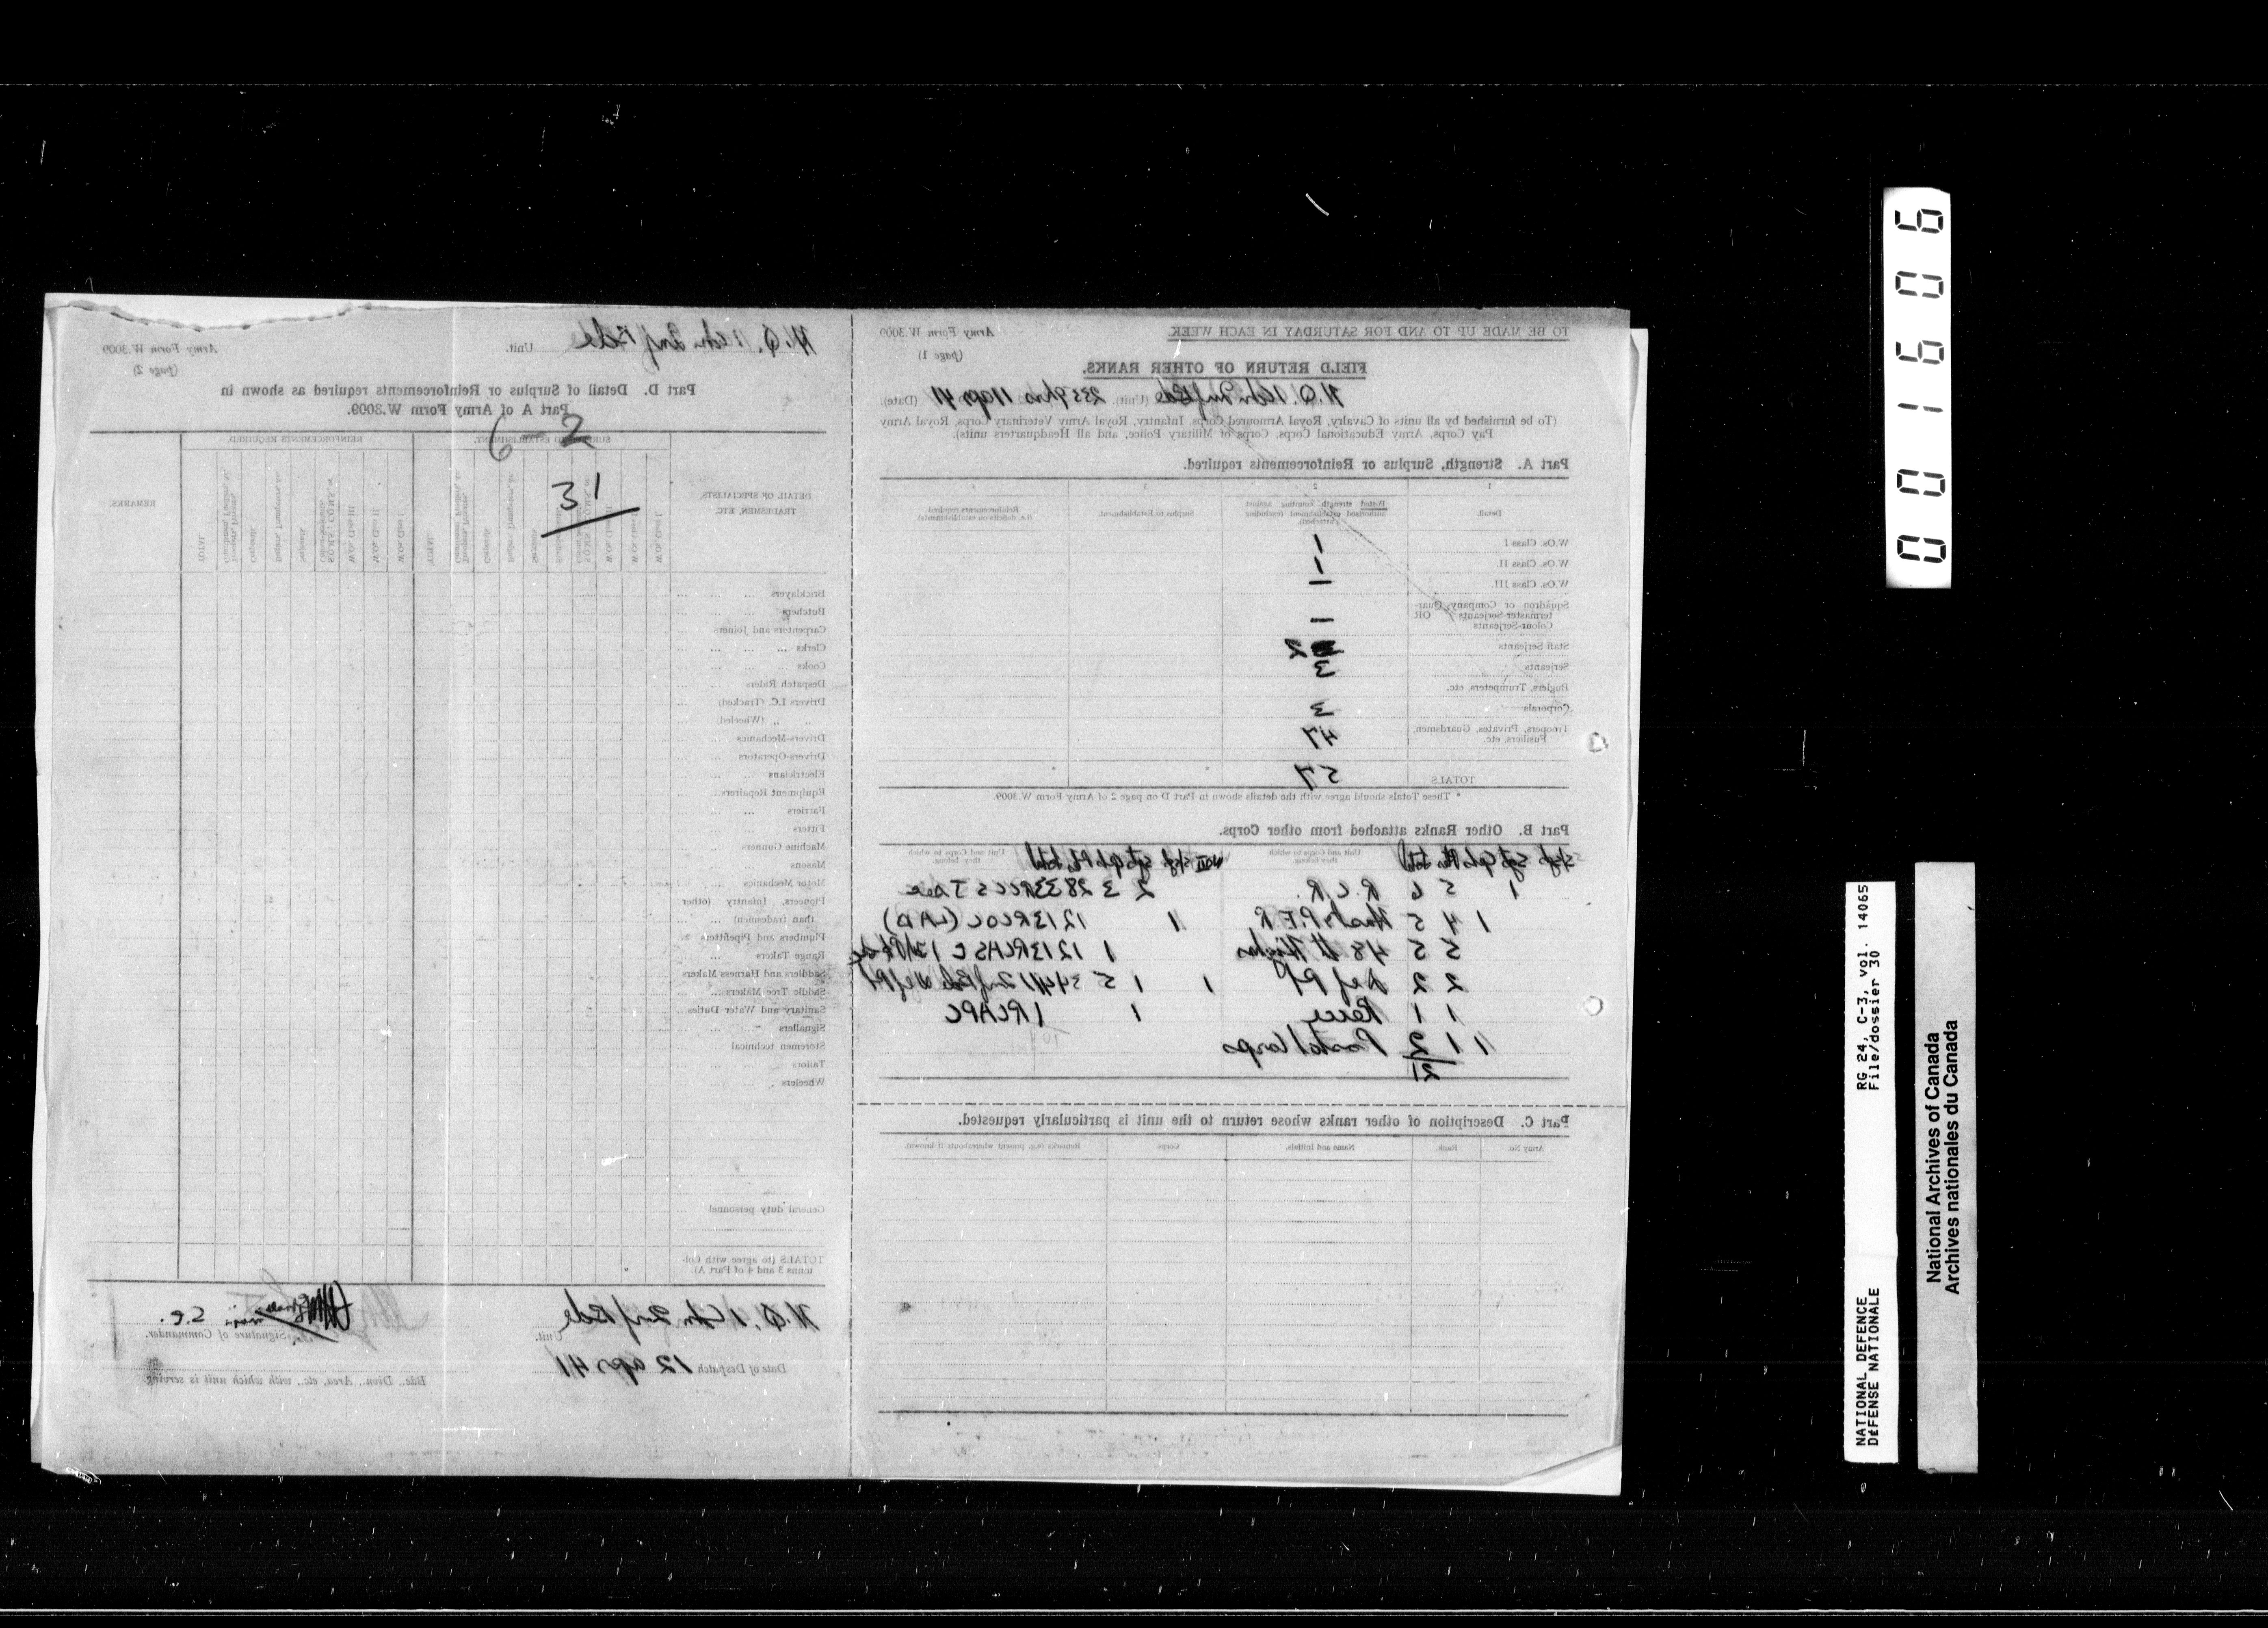 TO BE MADE UP TO AND FOR SATURDAY IN EACH WEEK
Army Form W.3009
(page 1)
FIELD RETURN OF OTHER RANKS.
H.Q. 1 Cdn Inf Bde (Unit). 2359 hrs 11 apr 41 (Date).
(To be furnished by all units of Cavalry, Royal Armoured Corps, Infantry, Royal Army Veterinary Corps, Royal Army
Pay Corps, Army Educational Corps, Corps of Military Police, and all Headquarters units).
Part A. Strength, Surplus or Reinforcements required.
1 2 3 4
Detail. Posted strength counting against authorised establishment (excluding attached). Surplus to Establishment. Reinforcements required (i.e. deficits on establishments)
W.Os. Class I 1
W.Os. Class II. 1
W.Os. Class III. —
Squadron or Company Quar-
termaster-Serjeants OR
Colour-Serjeants —
Staff Serjeants 2
Serjeants 3
Buglers, Trumpeters, etc.
Corporals 3
Troopers, Privates, Guardsmen,
Fusiliers, etc. 47
TOTALS 57
* These Totals should agree with the details shown in Part D on page 2 of Army Form W.3009.
Part B. Other Ranks attached from other Corps.
Unit and Corps to which they belong. Unit and Corps to which they belong.
1 5 6 R.C.R. 2 3 28 33 RCCS J Sec
1 4 5 Hast. P.E.R 1 12 13 RCOC (LAD)
5 5 48th Highrs 1 12 13 RCASC
2 2 Def Pl 1 1 5 34 41 Inf Bde Def Pl
1 1 Recce 1 1 RCAPC
1 1 2 Postal Corps
21
Part C. Description of other ranks whose return to the unit is particularly requested.
Army No. Rank. Name and Initials. Corps. Remarks (i.e. present whereabouts if known).
Unit. H.Q. 1 Cdn Inf Bde
Army Form W.3009
(page 2)
Part D. Detail of Surplus or Reinforcements required as shown in
Part A of Army Form W.3009.
6-2
31
DETAIL OF SPECIALISTS, TRADESMEN, ETC.
SURPLUS TO ESTABLISHMENT.
REINFORCEMENTS REQUIRED.
REMARKS.
W.Os. Class I.
W.Os. Class II.
W.Os. Class III.
Serjeants.
Buglers, Trumpeters, &c.
Corporals.
TOTAL.
W.Os. Class I.
W.Os. Class II.
W.Os. Class III.
Serjeants.
Buglers, Trumpeters, &c.
Corporals.
TOTAL.
Bricklayers
Butchers
Carpenters and Joiners
Clerks
Cooks
Despatch Riders
Drivers I.C. (Tracked)
„ „ (Wheeled)
Drivers-Mechanics
Drivers-Operators
Electricians
Equipment Repairers
Farriers
Fitters
Machine Gunners
Masons
Motor Mechanics
Pioneers, Infantry (other
than tradesmen)
Plumbers and Pipefitters
Range Takers
Saddlers and Harness Makers
Saddle Tree Makers
Sanitary and Water Duties
Signallers
Storemen technical
Tailors
Wheelers
General duty personnel
TOTALS (to agree with Col-
umns 3 and 4 of Part A).
H.Q. 1 Cdn Inf Bde Unit.
Signature of Commander.
Date of Despatch 12 apr 41
Bde., Divn., Area, etc., with which unit is serving.
001606
NATIONAL DEFENCE RG 24, C-3, vol. 14065
DÉFENSE NATIONALE File/dossier 30
National Archives of Canada
Archives nationales du Canada